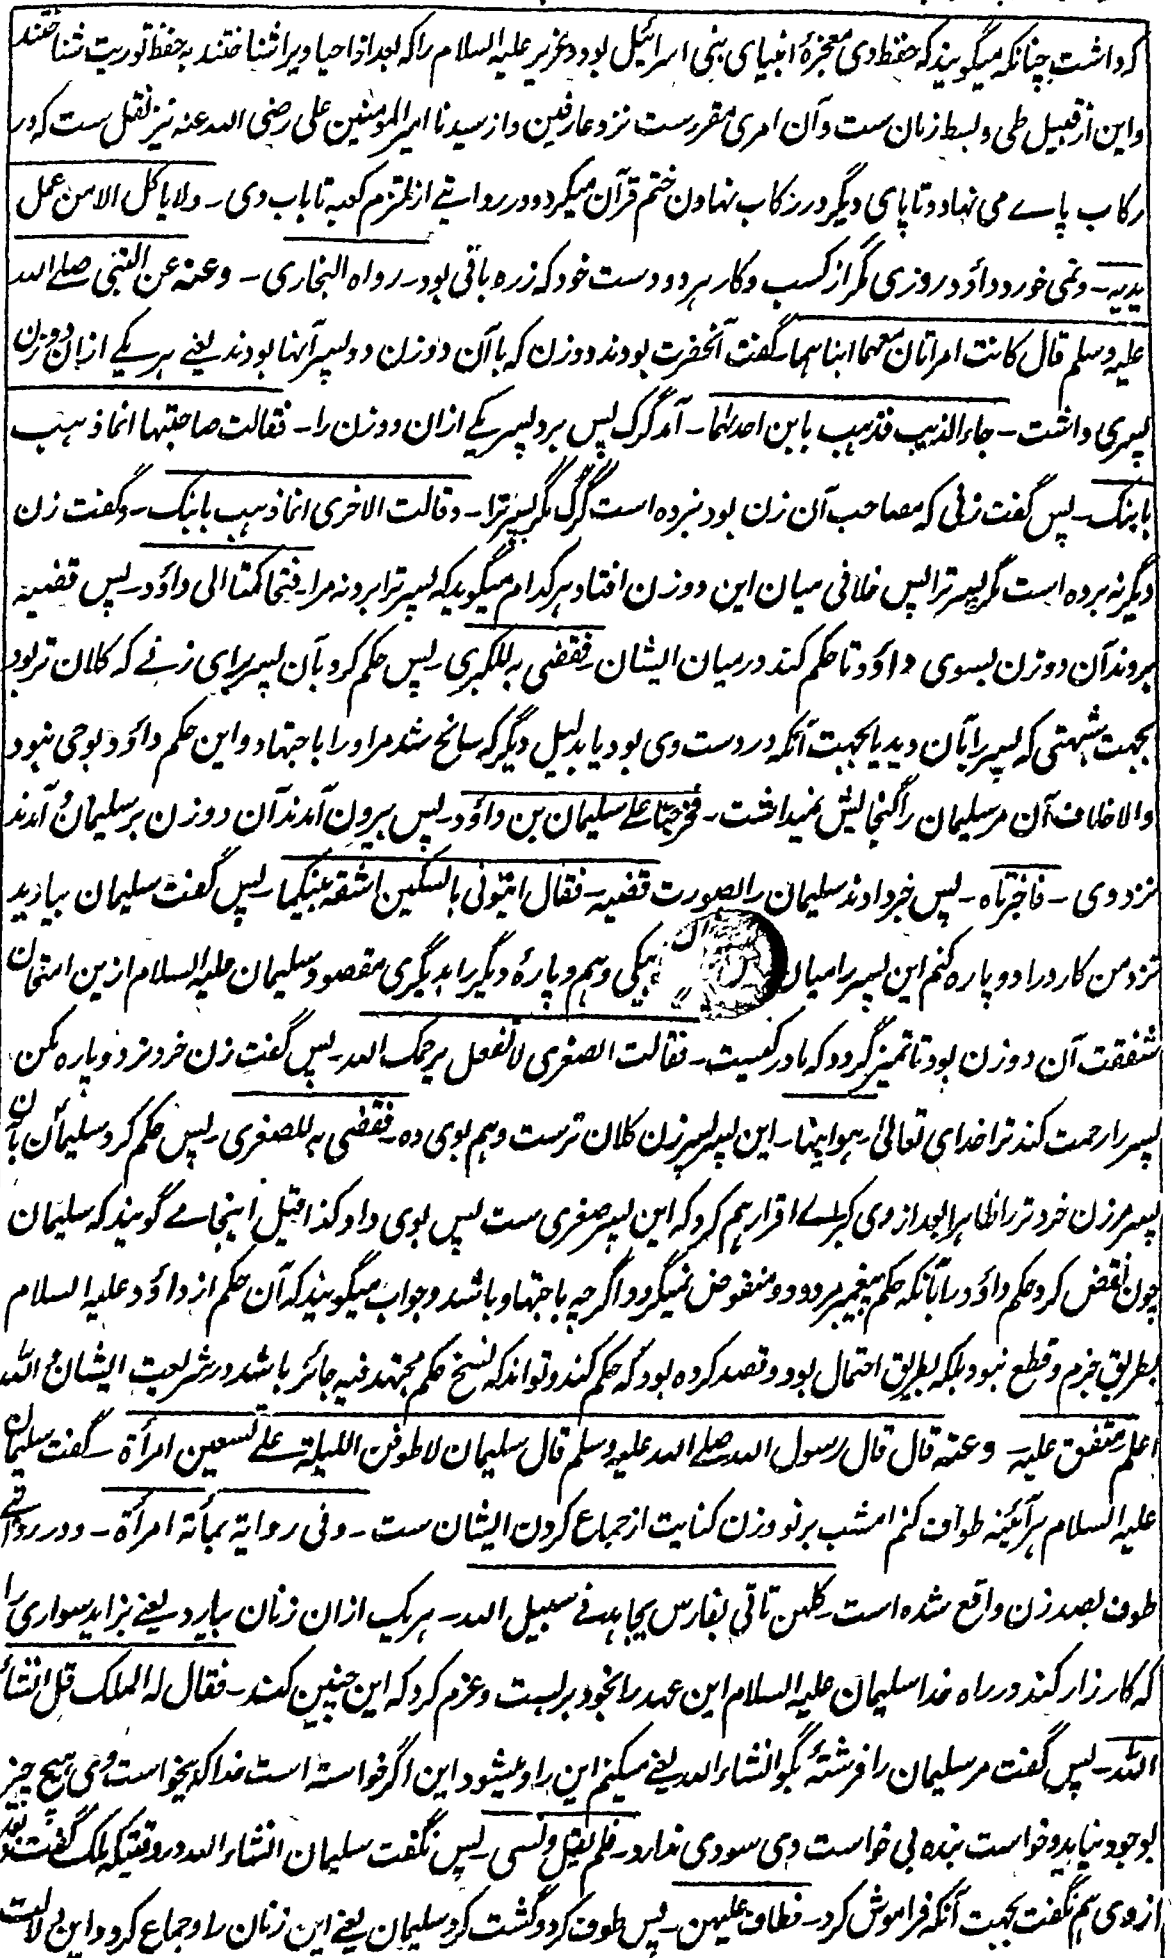 که داشت چنانکه میگویند که حفظ وی معجزهٔ انبیای بنی اسرائیل بود و عزیر علیه السلام را که بعد از احیا ویرا شناختند به حفظ توریت شناختند
و این از قبیل طی و بسط زمان ست و آن امری مقررست نزد عارفین و از سیدنا امیر المؤمنین علی رضی الله عنه نیز نقل ست که در
رکاب پاے می نهاد و تا پای دیگر در رکاب نهادن ختم قرآن میکرد و در روایتے از ملتزم کعبه تا باب وی ـ ولا یاکل الا من عمل
یدیه ـ و نمی خورد داؤد روزی مگر از کسب و کار هر دو دست خود که زره بافی بود ـ رواه البخاری ـ وعنه عن النبی صلے الله
علیه وسلم قال کانت امرأتان معهما ابناهما ـ گفت آنحضرت بودند دو زن که با آن دو زن دو پسر آنها بودند یعنے هر یکے ازان دو زن
پسری داشت ـ جاء الذئب فذهب بابن احدٰهما ـ آمد گرگ پس برد پسر یکے ازان دو زن را ـ فقالت صاحبتها انما ذهب
بابنک ـ پس گفت زنی که مصاحب آن زن بود نبرده است گرگ مگر پسر ترا ـ وقالت الاخری انما ذهب بابنک ـ و گفت زن
دیگر نه برده است مگر پسر ترا پس خلافی میان این دو زن افتاد هر کدام میگوید که پسر ترا برد نه مرا ـ فتحاکمتا الی داؤد ـ پس قضیه
بردند آن دو زن بسوی داؤد تا حکم کند درمیان ایشان ـ فقضی به للکبری ـ پس حکم کرد بآن پسر برای زنے که کلان تر بود
بجهت شبهتی که پسر را بآن دید یا بجهت آنکه در دست وی بود یا بدلیل دیگر که سانح شد مر او را باجتهاد و این حکم داؤد بوحی نبود
والا خلاف آن مر سلیمان را گنجایش نمیداشت ـ فخرجتا علے سلیمان بن داؤد ـ پس بیرون آمدند آن دو زن بر سلیمان و آمدند
نزد وی ـ فاخبرتاه ـ پس خبر دادند سلیمان را بصورت قضیه ـ فقال ایتونی بالسکین اشقه بینکما ـ پس گفت سلیمان بیارید
نزد من کارد را دو پاره کنم این پسر را میان بیکی دهم و پارهٔ دیگر را بدیگری مقصود سلیمان علیه السلام ازین امتحان
شفقت آن دو زن بود تا تمیز گردد که مادر کیست ـ فقالت الصغری لا تفعل یرحمک الله ـ پس گفت زن خردتر دو پاره مکن
پسر را رحمت کند ترا خدای تعالیٰ ـ هو ابنها ـ این پسر پسر زن کلان ترست و هم بوی ده ـ فقضی به للصغری ـ پس حکم کرد سلیمان بآن
پسر مر زن خردتر را ظاهرا بعد از وی کبرے اقرار هم کرد که این پسر صغری ست پس بوی داد کذا قیل اینجا مے گویند که سلیمان
چون نقض کرد حکم داؤد را با آنکه حکم پیغمبر مردود و منقوض نمیگردد اگرچه باجتهاد باشد و جواب میگویند که آن حکم از داؤد علیه السلام
بطریق جزم و قطع نبود بلکه بطریق احتمال بود و قصد کرده بود که حکم کند و تواند که نسخ حکم مجتهد فیه جائز باشد در شریعت ایشان والله
اعلم متفق علیه ـ وعنه قال قال رسول الله صلے الله علیه وسلم قال سلیمان لاطوفن اللیلة علے تسعین امرأة ـ گفت سلیمان
علیه السلام هر آئینه طواف کنم امشب بر نود زن کنایت از جماع کردن ایشان ست ـ وفی روایة بمائة امرأة ـ و در روایتے
طوف بصد زن واقع شده است ـ کلهن تاتی بفارس یجاهد فے سبیل الله ـ هر یک ازان زنان بیارد یعنے بزاید سواری را
که کارزار کند در راه خدا سلیمان علیه السلام این عهد را بخود بربست و عزم کرد که این چنین کند ـ فقال له الملک قل انشاء
الله ـ پس گفت مر سلیمان را فرشتهٔ بگو انشاء الله یعنے میکنم این را و میشود این اگر خواسته است خدا که بیخواست وی هیچ چیز
بوجود نیاید و خواست بنده بی خواست وی سودی ندارد ـ فلم یقل ونسی ـ پس نگفت سلیمان انشاء الله در وقتیکه ملک گفت
از وی هم نگفت بجهت آنکه فراموش کرد ـ فطاف علیهن ـ پس طوف کرد و گشت کرد سلیمان یعنے این زنان را و جماع کرد و این دلالت